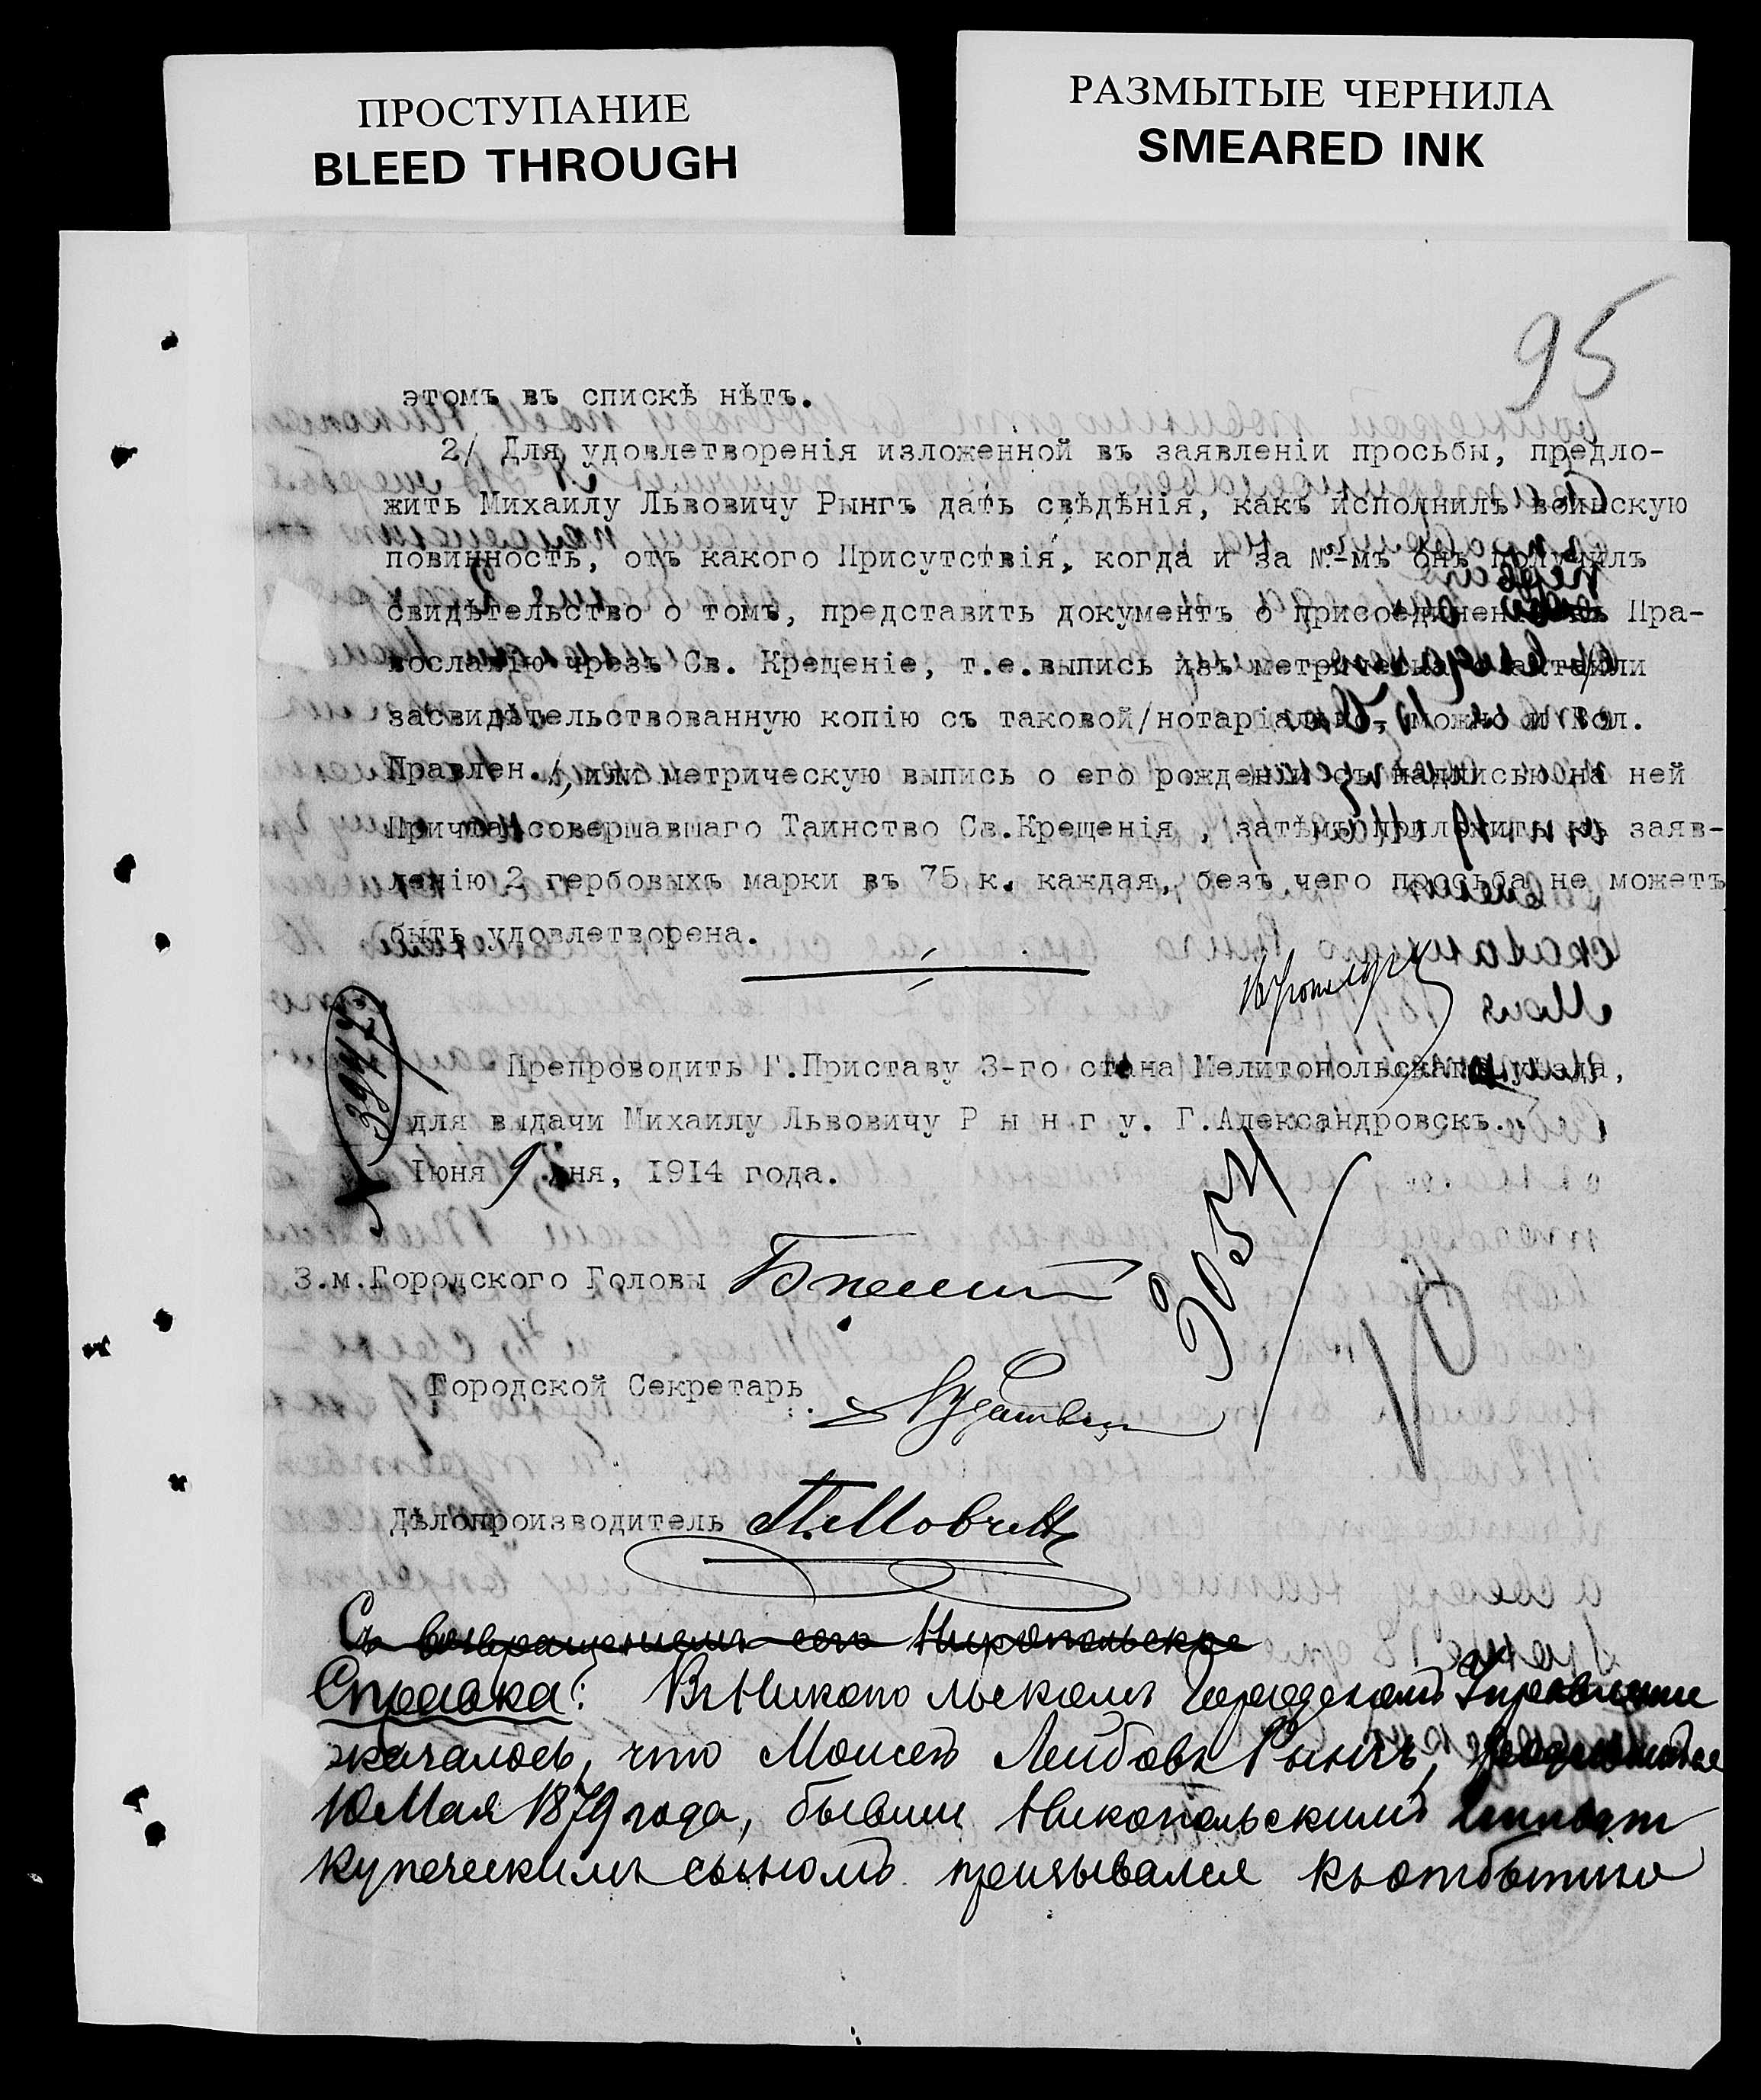 ПРОСТУПАНИЕ
BLEED THROUGH
РАЗМЫТЫЕ ЧЕРНИЛА
SMEARED INK
95
этомъ въ спискѣ нѣтъ.
2/ Для удовлетворенія изложенной въ заявленіи просьбы, предло-
жить Михаилу Львовичу Рынгъ дать свѣдѣнія, какъ исполнилъ воинскую
повинность, отъ какого Присутствія, когда и за №-мъ онъ получилъ
свидѣтельство о томъ, представить документъ о присоединеніи къ Пра-
вославію чрезъ Св. Крещеніе, т.е.выпись изъ метрическаго акта/или
засвидѣтельствованную копію съ таковой/нотаріально, можно и Вол.
Правлен./, или метрическую выпись о его рожденіи съ надписью на ней
Причта, совершавшаго Таинство Св.Крещенія , затѣмъ приложить къ заяв-
ленію 2 гербовыхъ марки въ 75 к. каждая, безъ чего просьба не можетъ
быть удовлетворена.
Препроводить Г.Приставу 3-го стана Мелитопольскаго уѣзда,
для выдачи Михаилу Львовичу Р ы н г у. Г.Александровскъ.
Іюня 9 дня, 1914 года.
З.м.Городского Головы
3054
Городской Секретарь
Дѣлопроизводитель
Съ возвращеніемъ сего Никопольское
Справка: Въ Никопольскомъ Городскомъ Управленіи
что Моисей Лейбовъ Рынгъ,
10 Мая 1879 года, бывши Никопольскимъ
купеческимъ сыномъ призывался къ отбытію